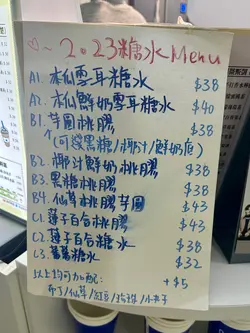 ♡~ 2.23糖水Menu
A1. 木仙雪耳糖水 $38
A2. 木仙鮮奶雪耳糖水 $40
B1. 芋圓桃膠 $38
(可揀黑糖/椰汁/鮮奶底)
B2. 椰汁鮮奶桃膠 $38
B3. 黑糖桃膠 $38
B4. 仙草桃膠芋圓 $43
C1. 蓮子百合桃膠 $43
C2. 蓮子百合糖水 $38
C3. 蕃薯糖水 $32
以上均可加配: +$5
布丁/仙草/紅豆/珍珠/小丸子